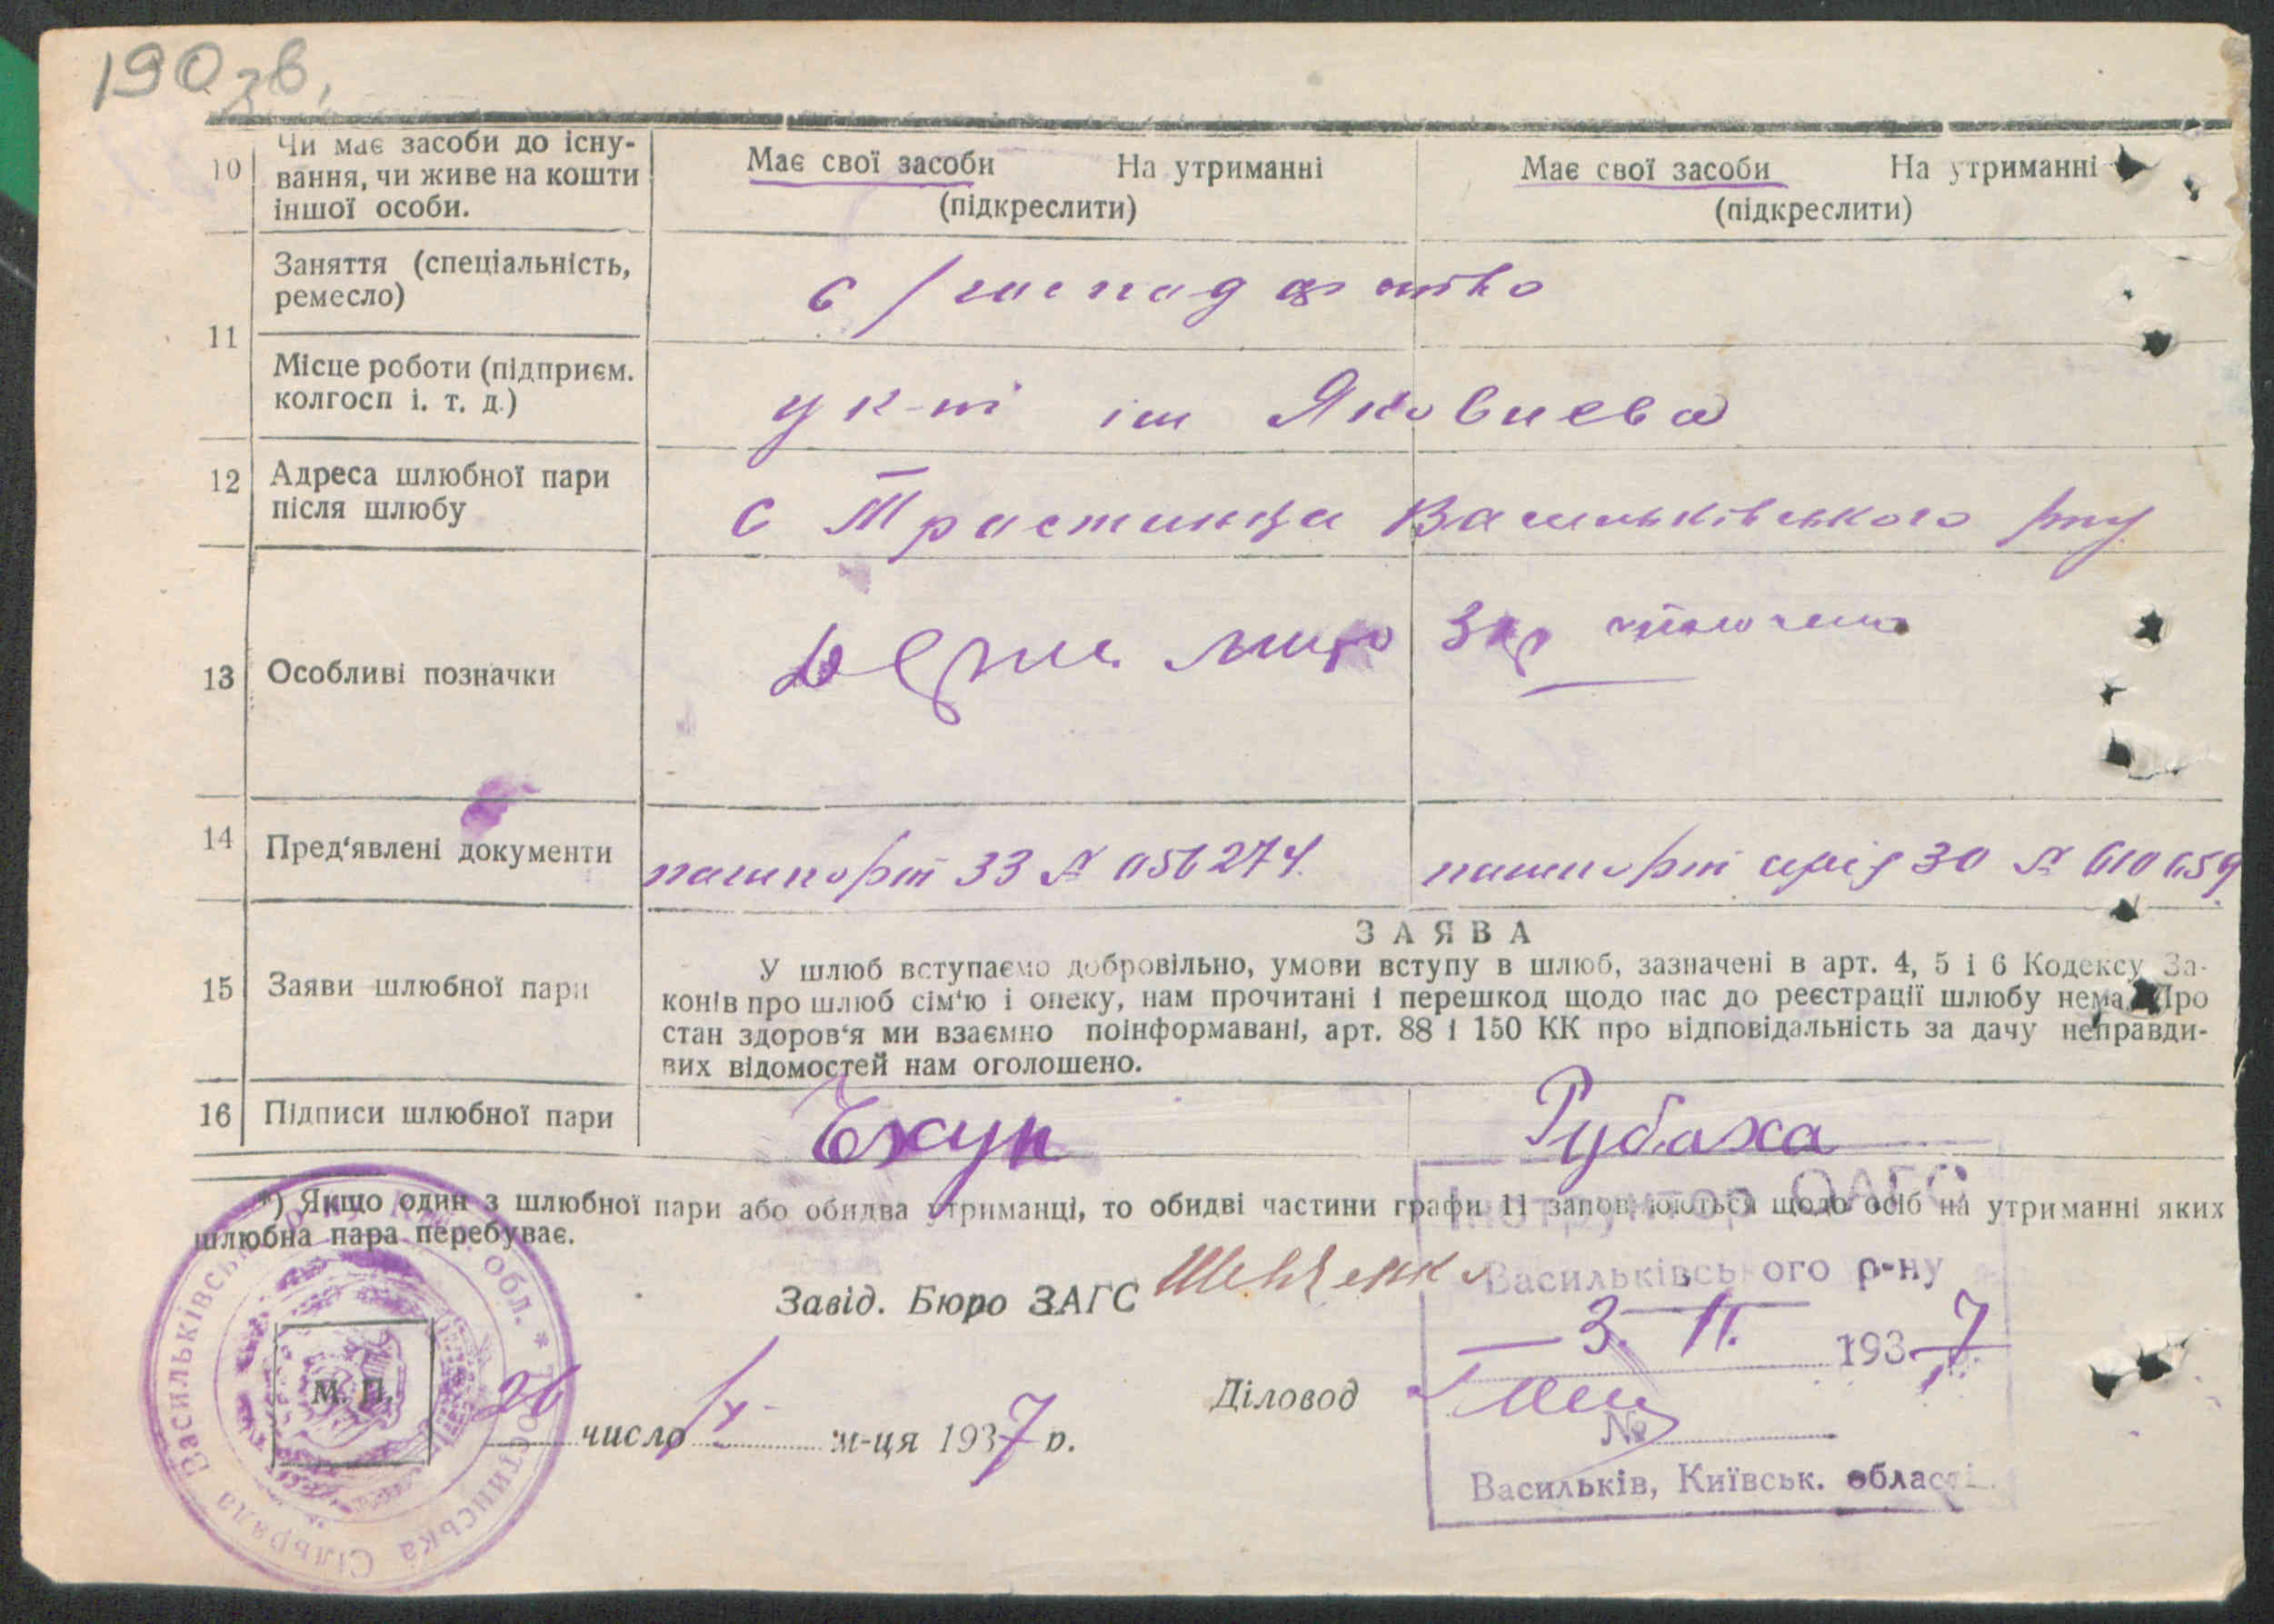 190 зв.
10 Чи має засоби до існу-
вання, чи живе на кошти
іншої особи.
Має свої засоби На утриманні
(підкреслити)
Має свої засоби На утриманні
(підкреслити)
11
Заняття (спеціальність,
ремесло)
с/господарство
Місце роботи (підприєм.
колгосп і. т. д.)
у к-пі ім Яковлева
12 Адреса шлюбної пари
після шлюбу
с Тростинка Васильківського р-ну
13 Особливі позначки
14 Пред'явлені документи
пашпорт 33 № 056274
пашпорт серія 30 № 610659
15 Заяви шлюбної пари
ЗАЯВА
У шлюб вступаємо добровільно, умови вступу в шлюб, зазначені в арт. 4, 5 і 6 Кодексу За-
конів про шлюб сім'ю і опеку, нам прочитані і перешкод щодо нас до реєстрації шлюбу нема. Про
стан здоров'я ми взаємно поінформавані, арт. 88 і 150 КК про відповідальність за дачу неправди-
вих відомостей нам оголошено.
16 Підписи шлюбної пари
Рубаха
*) Якщо один з шлюбної пари або обидва утриманці, то обидві частини графи 11 заповнюються щодо осіб на утриманні яких
шлюбна пара перебуває.
Інструктор ОАГС
Васильківського р-ну
3. II. 1937
№
Васильків, Київськ. області
Завід. Бюро ЗАГС Шевченко
Діловод
М. П.
26 число м-ця 1937 р.